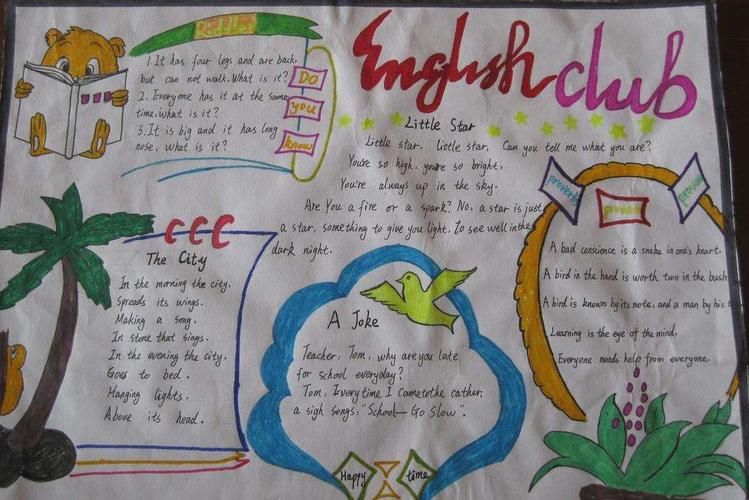 English club
1. It has four legs and are back,
but can not walk. What is it?
2. Everyone has it at the same
time, what is it?
3. It is big and it has long
nose, what is it?
DO
you
know
Little Star
Little star, little star, Can you tell me what you are?
You're so high, you're so bright,
You're always up in the sky.
Are You a fire or a spark? No, a star is just
a star, something to give you light, To see well in the
dark night.
CCC
The City
In the morning the city.
Spreads its wings.
Making a song.
In stone that sings.
In the evening the city.
Goes to bed.
Hanging lights.
Above its head.
A Joke
Teacher: Tom, why are you late
for school everyday?
Tom: Every time I came to the cather,
a sigh songs: "School—Go Slow".
Happy time
proverb
proverb
A bad conscience is a snake in one's heart.
A bird in the hand is worth two in the bush
A bird is known by its note, and a man by his
Learning is the eye of the mind.
Everyone needs help from everyone.